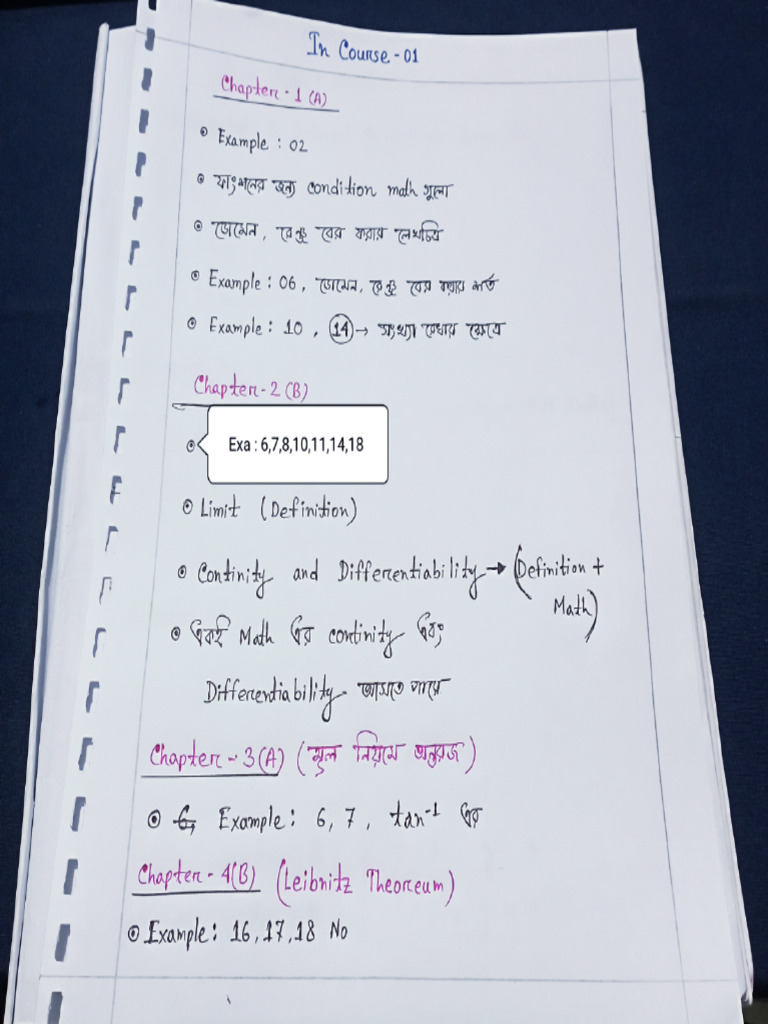 In Course - 01
Chapter - 1 (A)
Example : 02
ফাংশনের জন্য condition math গুলো
ডোমেন, রেঞ্জ বের করার লেখচিত্র
Example : 06, ডোমেন, রেঞ্জ বের করার শর্ত
Example : 10, 14 → সংখ্যা রেখার ক্ষেত্রে
Chapter - 2 (B)
Exa : 6,7,8,10,11,14,18
Limit (Definition)
Continity and Differentiability → (Definition +
Math)
একই Math এর continity এবং
Differentiability আসতে পারে
Chapter - 3(A) (মূল নিয়মে অন্তরজ)
Example : 6, 7, tan⁻¹ এর
Chapter - 4(B) (Leibnitz Theoreum)
Example : 16, 17, 18 No